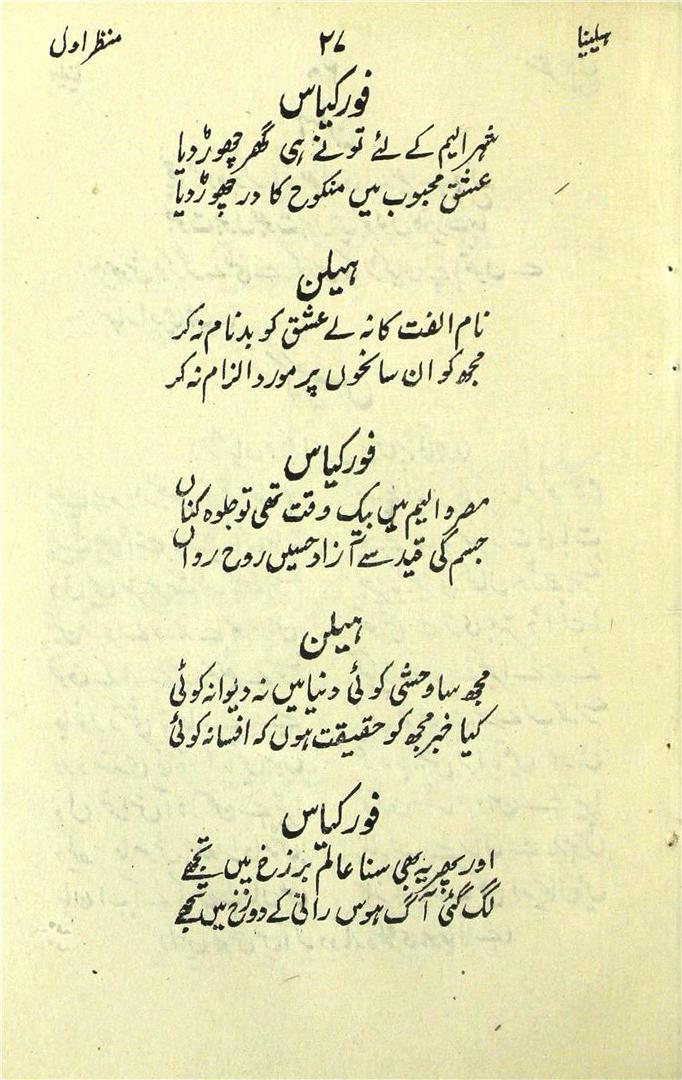 ہیلینا
۲۷
منظر اول
فورکیاس
شہر الیم کے لئے تو نے ہی گھر چھوڑ دیا
عشق محبوب میں منکوح کا در چھوڑ دیا
ہیلن
نام الفت کا نہ لے عشق کو بدنام نہ کر
مجھ کو ان سانحوں پر مورد الزام نہ کر
فورکیاس
مصر و الیم میں بیک وقت تھی تو جلوہ کناں
جسم کی قید سے آزاد حسیں روح رواں
ہیلن
مجھ سا وحشی کوئی دنیا میں نہ دیوانہ کوئی
کیا خبر مجھ کو حقیقت ہوں کہ افسانہ کوئی
فورکیاس
اور پھر یہ بھی سنا عالم برزخ میں تجھے
لگ گئی آگ ہوس رانی کے دوزخ میں تجھے